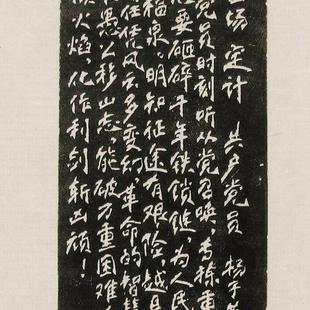 场 定计 共产党员 杨子
党员时刻听从党召唤，专拣重
要砸碎千年铁锁链，为人民
福泉。明知征途有艰险，越
任凭风云多变幻，革命的智慧
愚公移山志，能破万重困难
火焰，化作利剑斩凶顽！